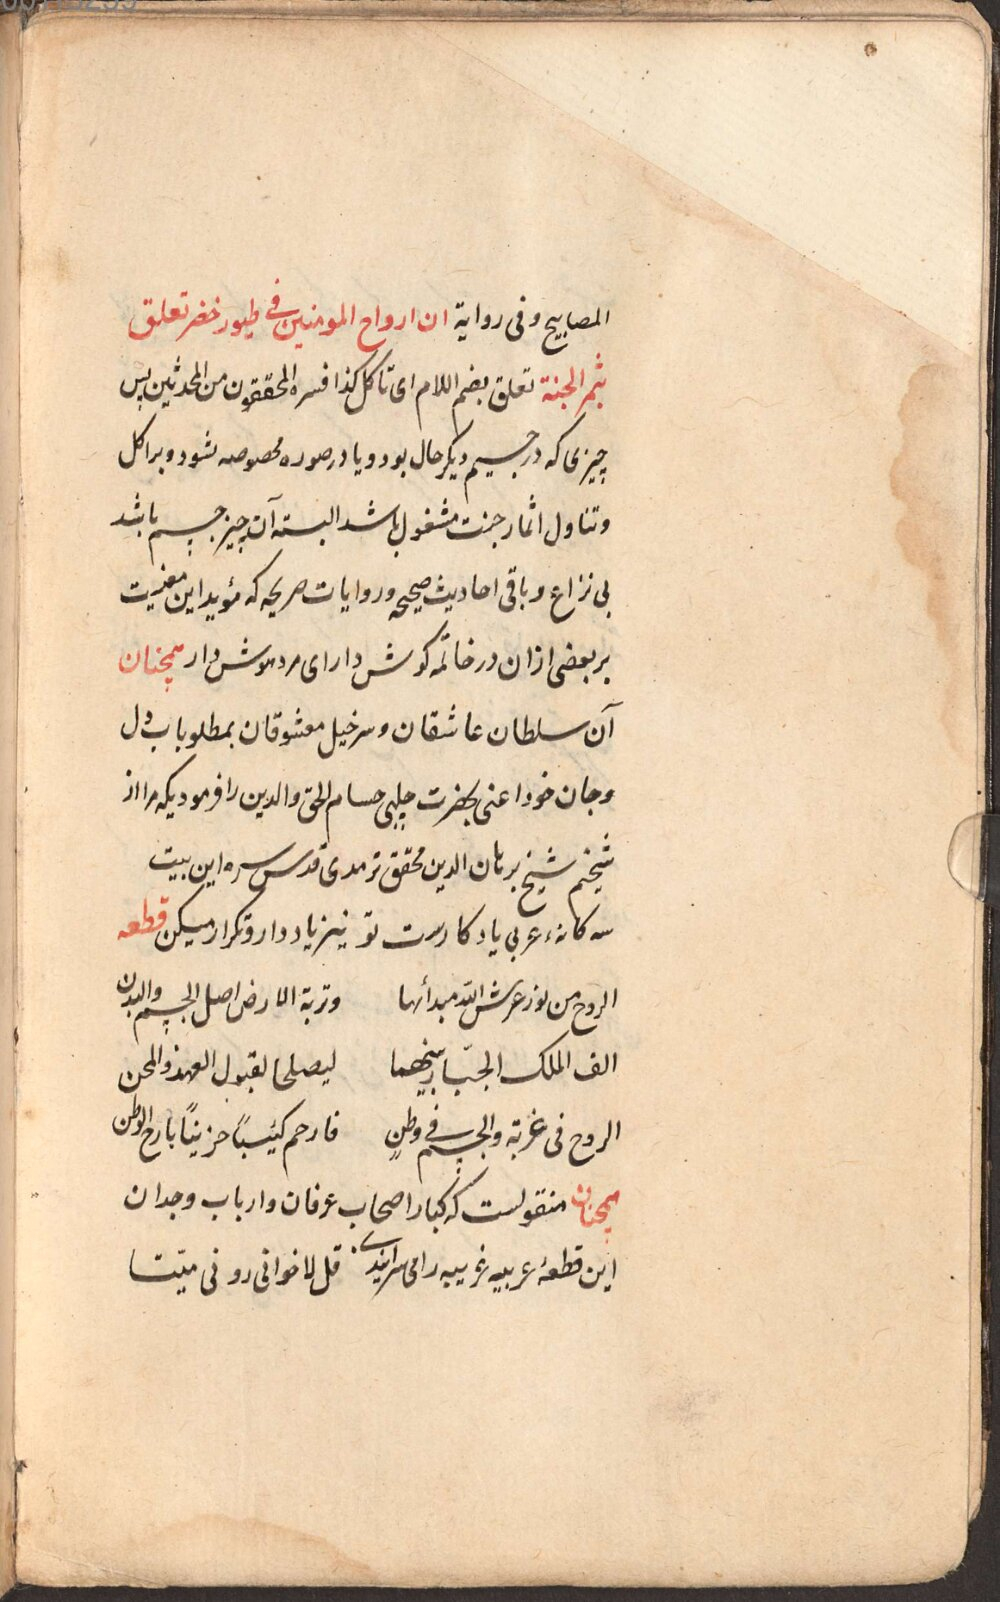 المصابیح وفی روایة ان ارواح المومنین فی طیور خضر تعلق
بثمر الجنة تعلق بضم اللام ای تاکل کذا فسره المحققون من المحدثین پس
چیزی که در جسیم دیکر حال بود و یا در صوره مخصوصه شود و براکل
وتناول اثمار جنت مشغول باشد البته آن چیز جسم باشد
بی نزاع و باقی احادیث صحیحه و روایات صریحه که مؤید این معنیت
بر بعضی ازان در خاتمه کوش دار ای مرد هوش دار همچنان
آن سلطان عاشقان وسرخیل معشوقان بمطلوب دل
وجان خود اعنی بحضرت چلبی حسام الحق والدین را فرمود یکه مرا از
شیخم شیخ برهان الدین محقق ترمدی قدس سره این بیت
سه کانهء عربی یاد کارست تو نیز یاد دار و تکرار میکن قطعه
الروح من نور عرش الله مبدأها وتربة الارض اصل الجسم والبدن
الف الملک الجبّار بینهما لیصلحا لقبول العهد والمحن
الروح فی غربة والجسم فی وطنٍ فارحم کئیباً حزیناً نازح الوطن
همچنان منقولست که کبار اصحاب عرفان وارباب وجدان
این قطعهٔ عربیه غریبه را می سرایندی قل لاخوانی رونی میّتا